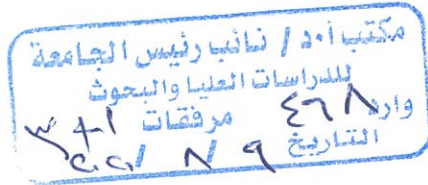 مكتب أ.د / نائب رئيس الجامعة
للدراسات العليا والبحوث
وارد ٤٦٨ مرفقات ٣+١
التاريخ ٩ / ٨ /